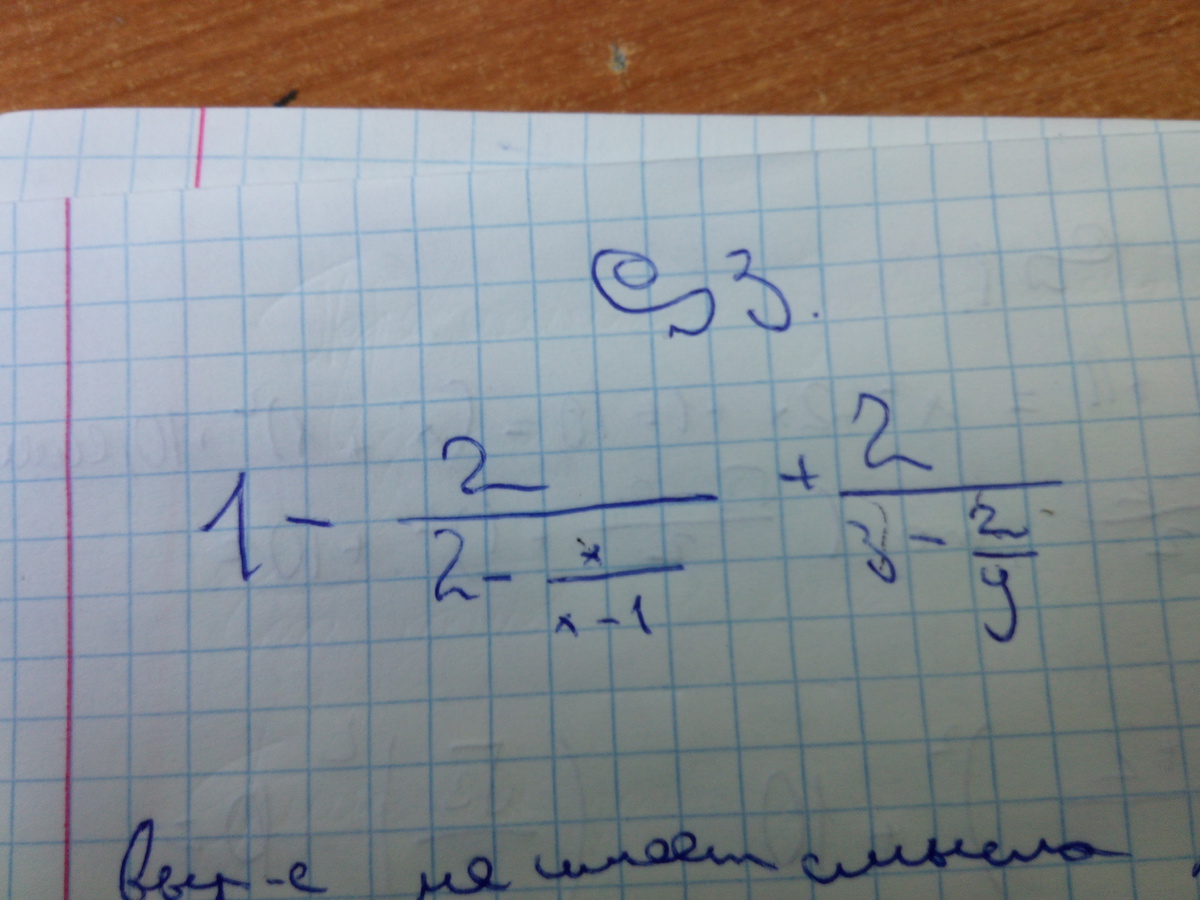 № 3.
1 - 2/(2 - x/(x - 1)) + 2/(3 - 2/y)
выр-е не имеет смысла